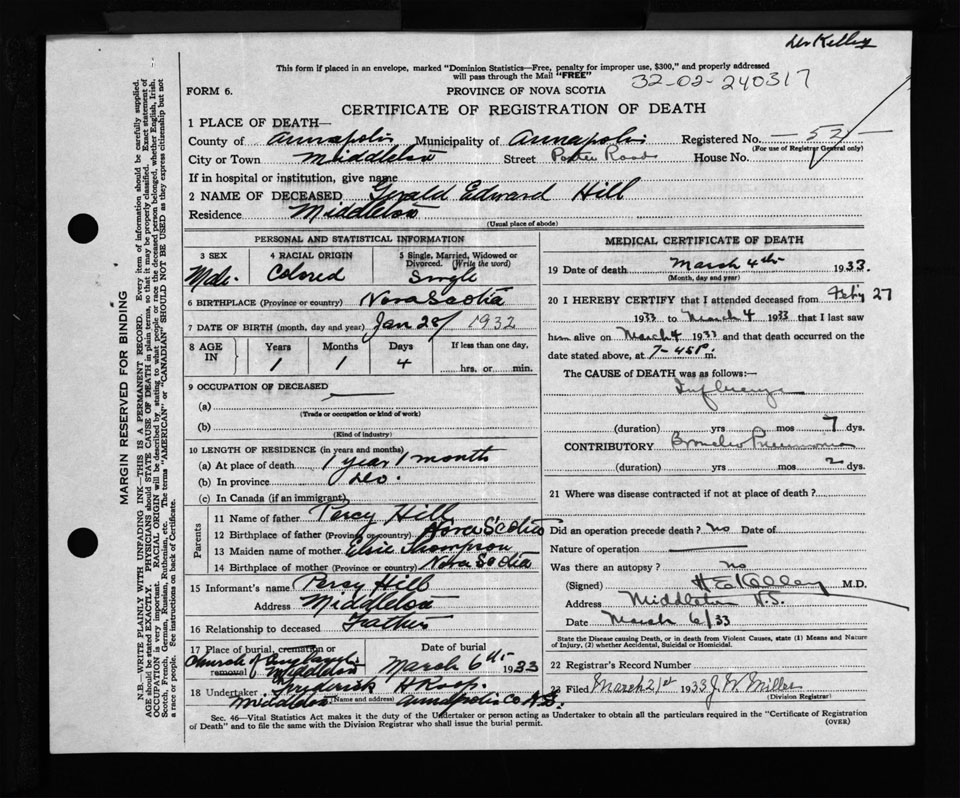 Dr Kelley
This form if placed in an envelope, marked "Dominion Statistics—Free, penalty for improper use, $300," and properly addressed
will pass through the Mail "FREE"
32-02-240317
FORM 6.
PROVINCE OF NOVA SCOTIA
CERTIFICATE OF REGISTRATION OF DEATH
1 PLACE OF DEATH—
County of Annapolis Municipality of Annapolis Registered No. 52
(For use of Registrar General only)
City or Town Middleton Street Road House No.
If in hospital or institution, give name
2 NAME OF DECEASED Gerald Edward Hill
Residence Middleton
(Usual place of abode)
PERSONAL AND STATISTICAL INFORMATION
3 SEX 4 RACIAL ORIGIN 5 Single, Married, Widowed or Divorced. (Write the word)
Male. Colored Single
6 BIRTHPLACE (Province or country) Nova Scotia
7 DATE OF BIRTH (month, day and year) Jan 28/ 1932
8 AGE IN Years Months Days If less than one day,
1 1 4 hrs. or min.
9 OCCUPATION OF DECEASED
(a)
(Trade or occupation or kind of work)
(b)
(Kind of industry)
10 LENGTH OF RESIDENCE (in years and months)
(a) At place of death 1 year 1 month
(b) In province Do.
(c) In Canada (if an immigrant)
Parents
11 Name of father Percy Hill
12 Birthplace of father (Province or country) Nova Scotia
13 Maiden name of mother Elsie Thompson
14 Birthplace of mother (Province or country) Nova Scotia
15 Informant's name Percy Hill
Address Middleton
16 Relationship to deceased Father
17 Place of burial, cremation or removal Date of burial
Church of England Middleton March 6th 1933
18 Undertaker Frederick H
Middleton (Name and address) Annapolis Co N.S.
MEDICAL CERTIFICATE OF DEATH
19 Date of death March 4th 1933.
(Month, day and year)
20 I HEREBY CERTIFY that I attended deceased from Feb'y 27
1933 to March 4 1933 that I last saw
him alive on March 4 1933 and that death occurred on the
date stated above, at 7-45 P m.
The CAUSE of DEATH was as follows:—
Influenza
(duration) yrs mos 7 dys.
CONTRIBUTORY Broncho Pneumonia
(duration) yrs mos 2 dys.
21 Where was disease contracted if not at place of death?
Did an operation precede death? no Date of
Nature of operation
Was there an autopsy? no
(Signed) H E Kelley M.D.
Address Middleton N.S.
Date March 6/33
State the Disease causing Death, or in death from Violent Causes, state (1) Means and Nature
of Injury, (2) whether Accidental, Suicidal or Homicidal.
22 Registrar's Record Number
23 Filed March 21st 1933 J W Miller
(Division Registrar)
Sec. 46—Vital Statistics Act makes it the duty of the Undertaker or person acting as Undertaker to obtain all the particulars required in the "Certificate of Registration
of Death" and to file the same with the Division Registrar who shall issue the burial permit.
(OVER)
MARGIN RESERVED FOR BINDING
N.B.—WRITE PLAINLY WITH UNFADING INK—THIS IS A PERMANENT RECORD. Every item of information should be carefully supplied.
AGE should be stated EXACTLY. PHYSICIANS should STATE CAUSE OF DEATH in plain terms, so that it may be properly classified. Exact statement of
OCCUPATION is very important. RACIAL ORIGIN will be described by stating to what people or race the deceased person belonged, whether English, Irish,
Scotch, French, German, Russian, Ruthenian, etc. The terms "AMERICAN" or "CANADIAN" SHOULD NOT BE USED as they express citizenship but not
a race or people. See instructions on back of Certificate.